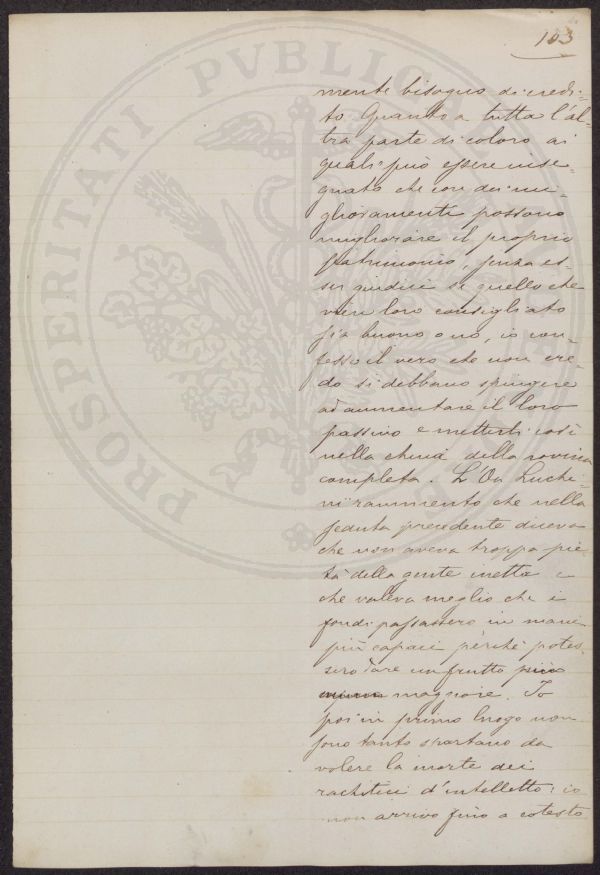 103
mente bisogno di credi-
to. Quanto a tutta l'al-
tra parte di coloro ai
quali può essere inse-
gnato che con dei mi-
glioramenti possono
migliorare il proprio
patrimonio, senza es-
ser giudici se quello che
vien loro consigliato
sia buono o nò, io con-
fesso il vero che non cre-
do si debbano spingere
ad aumentare il loro
passivo e metterli così
nella china della rovina
completa. L'On Luchi-
ni rammento che nella
seduta precedente diceva
che non aveva troppa pie-
tà della gente inetta e
che valeva meglio che i
fondi passassero in mani
più capaci perchè potes-
sero dare un frutto più
maggiore. Io
poi in primo luogo non
sono tanto spartano da
volere la morte dei
rachitici d'intelletto: io
non arrivo fino a cotesto
PROSPERITATI PVBLICAE